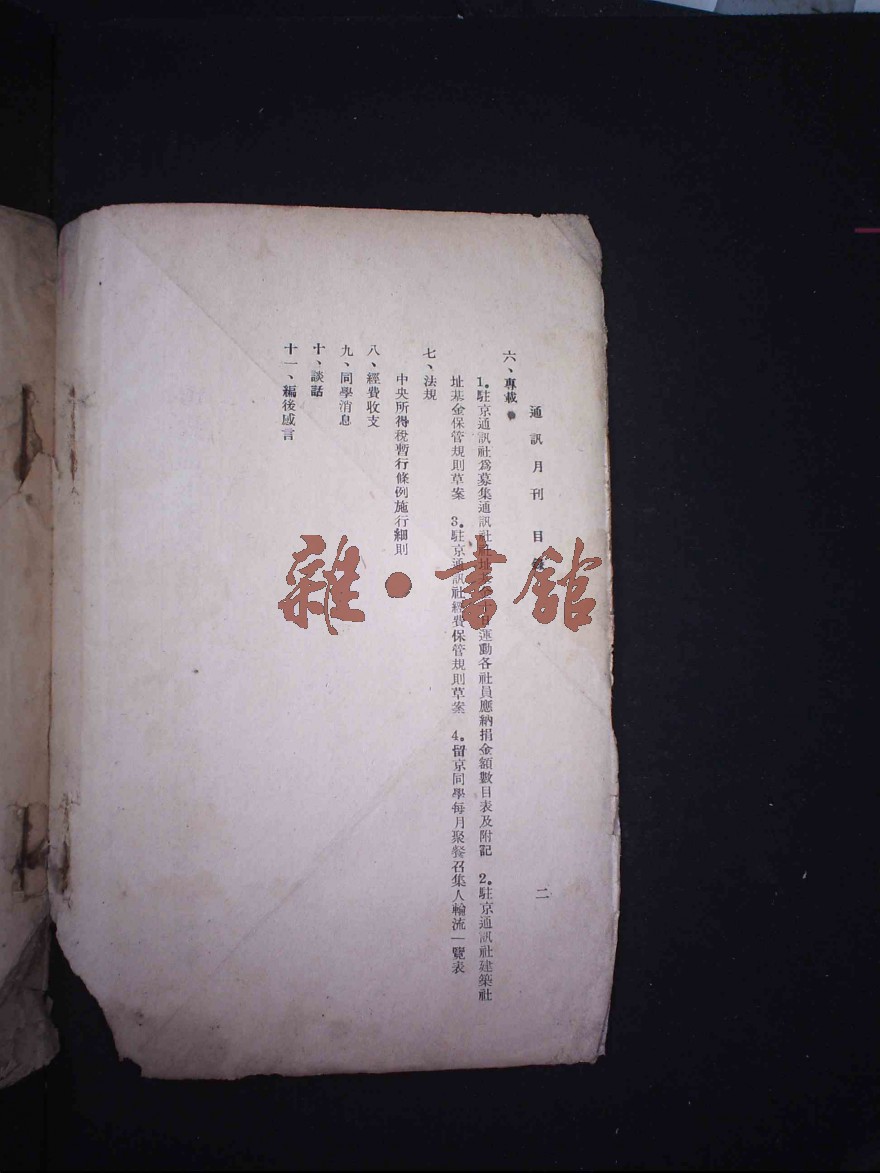 通訊月刊 目錄
二
六、專載
1.駐京通訊社爲募集通訊社社址基金十日運動各社員應納捐金額數目表及附記 2.駐京通訊社建築社
址基金保管規則草案 3.駐京通訊社經費保管規則草案 4.留京同學每月聚餐召集人輪流一覽表
七、法規
中央所得稅暫行條例施行細則
八、經費收支
九、同學消息
十、談話
十一、編後感言
雜·書館